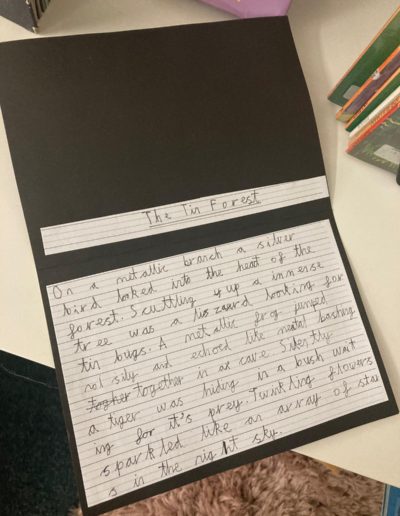 The Tin Forest
On a metallic branch a silver
bird looked into the heat of the
forest. Scuttling up a immense
tree was a lizzard looking for
tin bugs. A metallic frog jumped
noisily and echoed like metal bashing
togher together in a cave. Silently
a tiger was hiding in a bush wait
ing for it's prey. Twinkling flowers
sparkled like an array of star
s in the night sky.